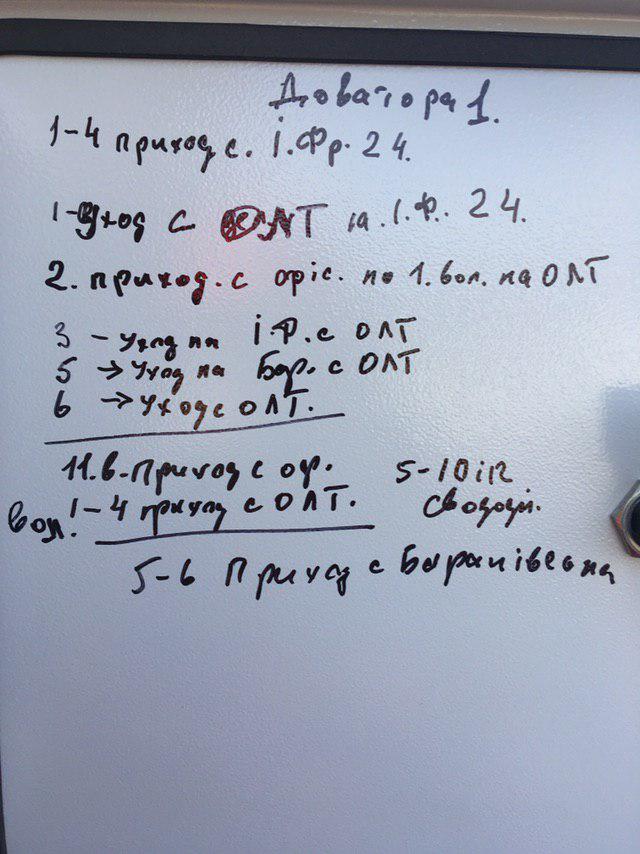 Доватора 1.
1-4 приход с. І.Фр. 24.
1-Уход с ОЛТ на І.Ф.. 24.
2. приход. с офіс. по 1. вол. на ОЛТ
3 - Уход на І.Ф. с ОЛТ
5 → Уход на Бар. с ОЛТ
6 → Уход с ОЛТ.
11.6-Приход с оф. 5-10 і 12
вол! 1-4 приход с ОЛТ. свободн.
5-6 Приход с Баранівська